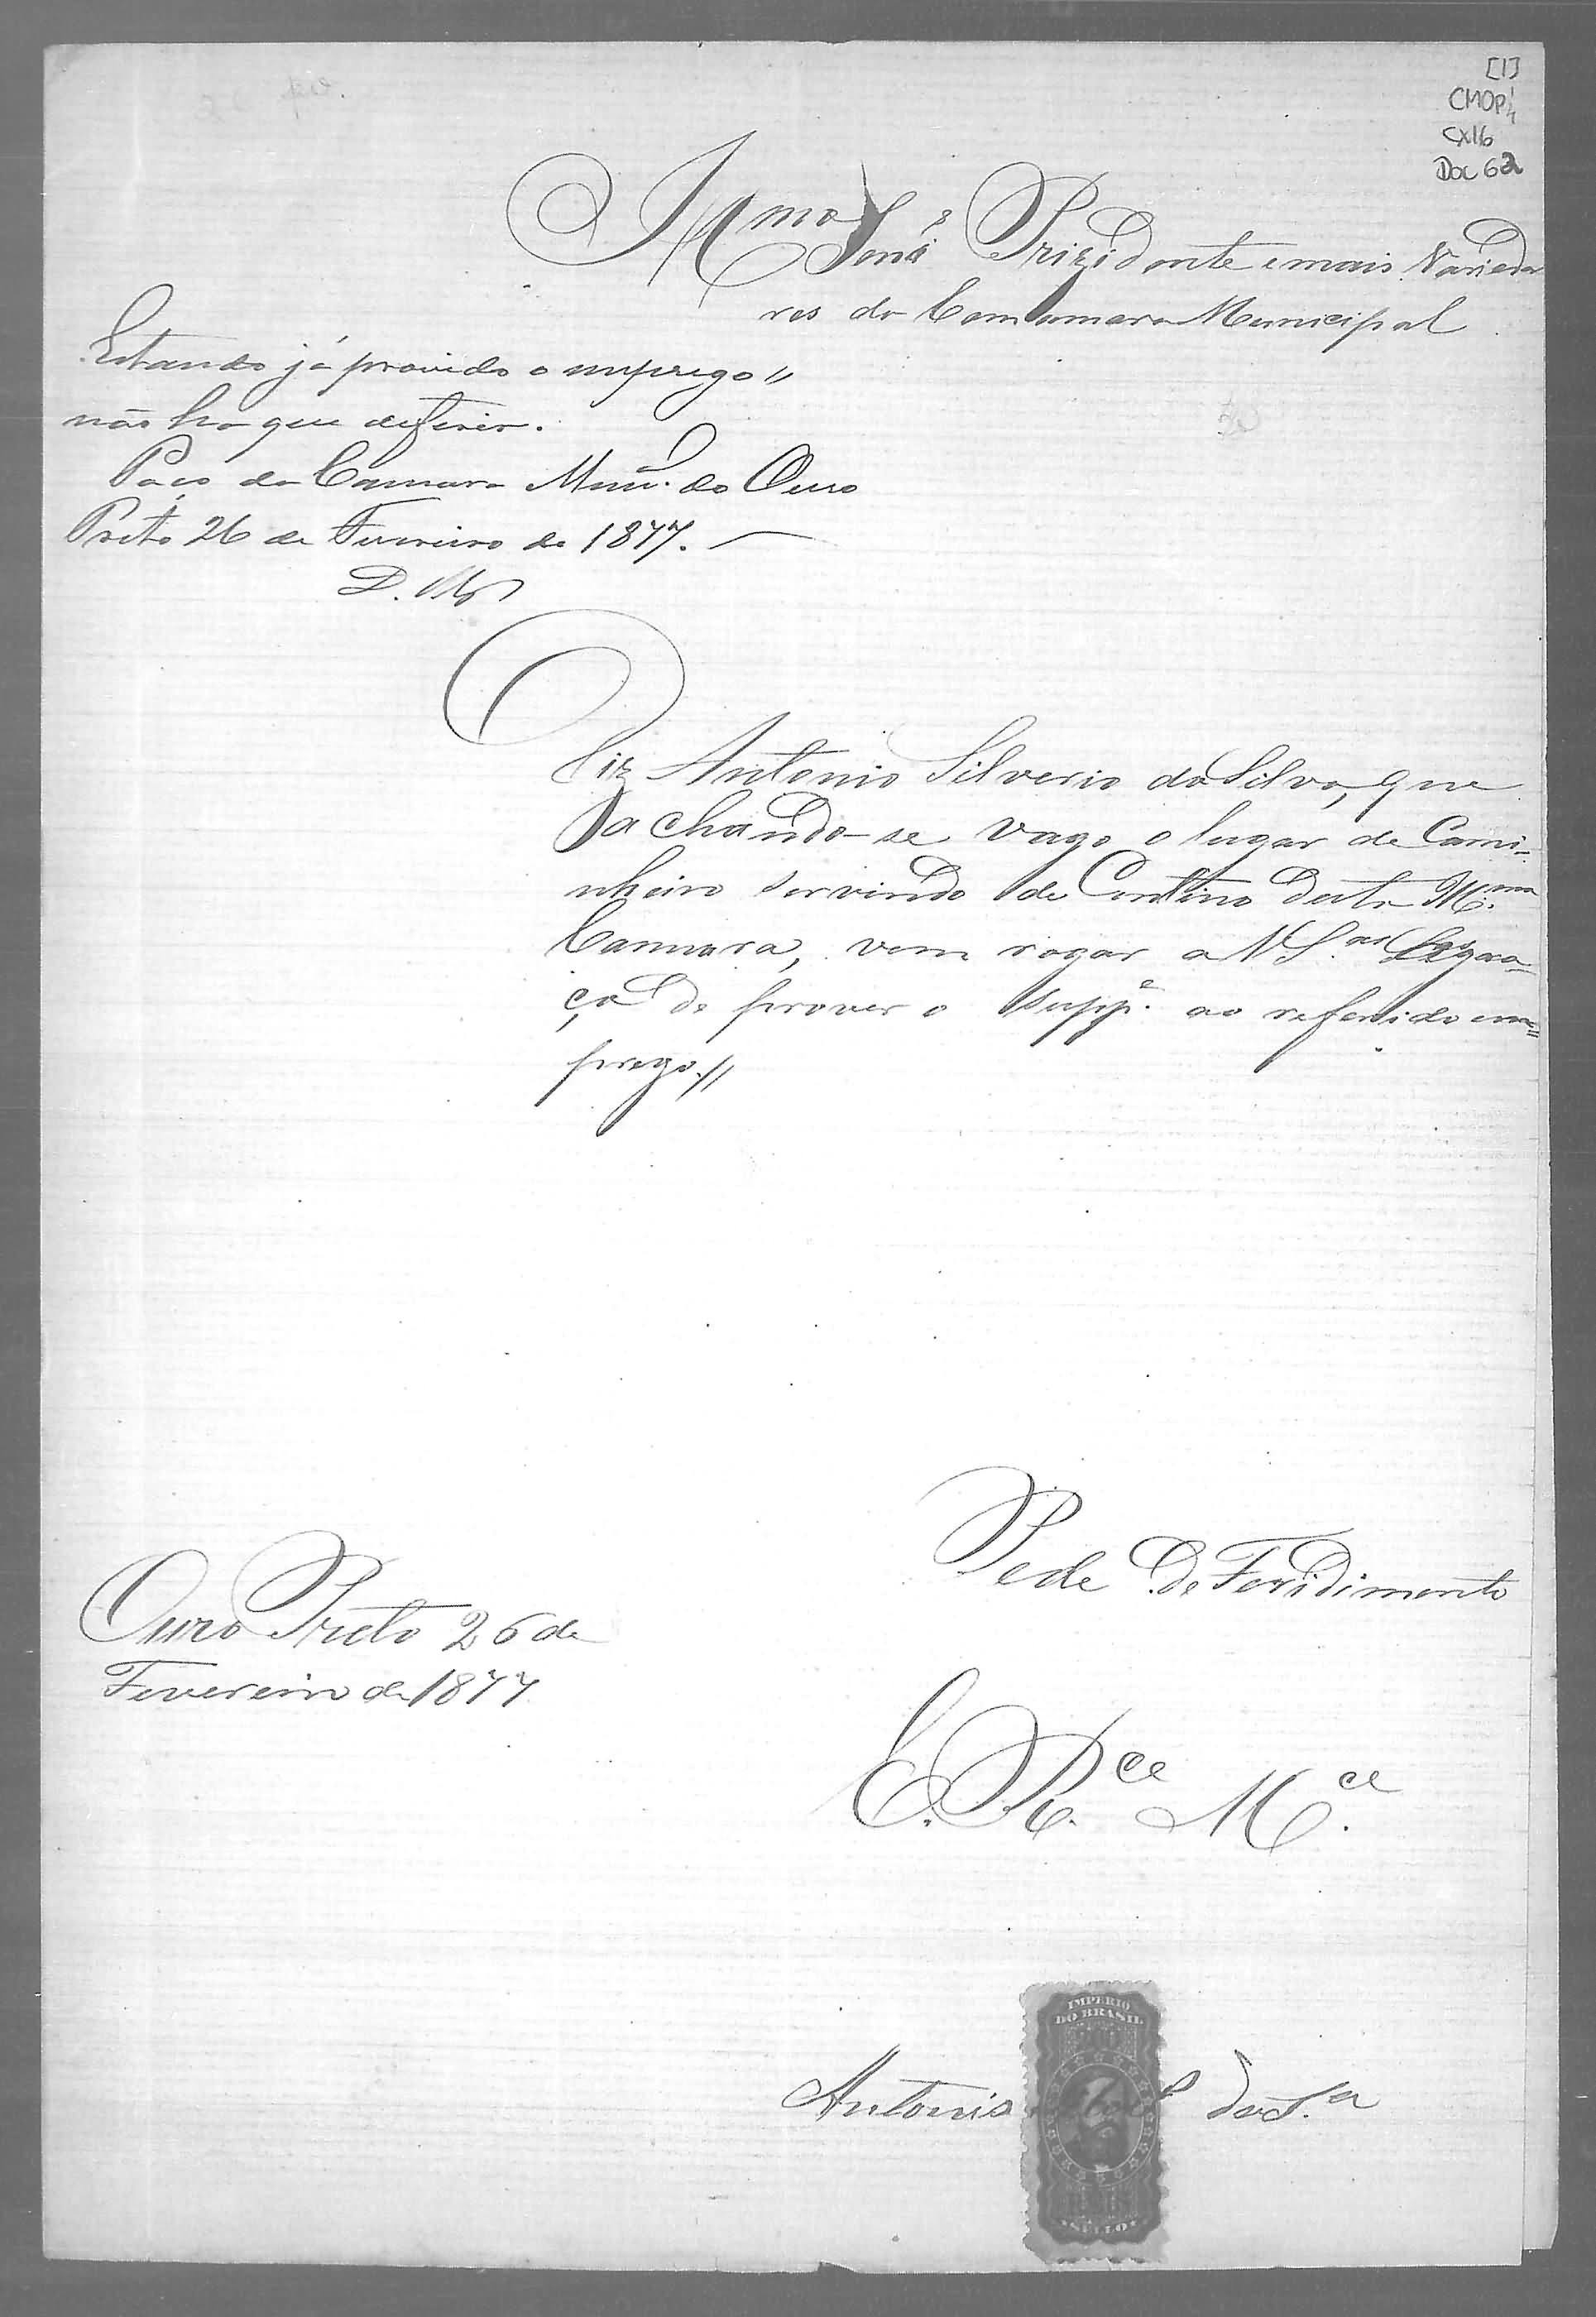 [1]
CMOP
CX16
Doc 62
Illmo Senrs Prizidente e mais Variado
res da Cammara Municipal
Estando já provido o emprego //
não ha que deferir.
Paço da Camara Mun. do Ouro
Preto 26 de Fevereiro de 1877.
D. M
Diz Antonio Silverio da Silva, que
achando-se vago o lugar de Cami-
nheiro servindo de Contino desta M.ma
Cammara, vem rogar a VS.as gra-
ça de prover o Supp.e ao referido em=
prego.//
Pede DeFeridimento
Ouro Preto 26 de
Fevereiro de 1877
E. R.ce M.ce
IMPERIO
DO BRASIL
Antonio da S.a
SELLO